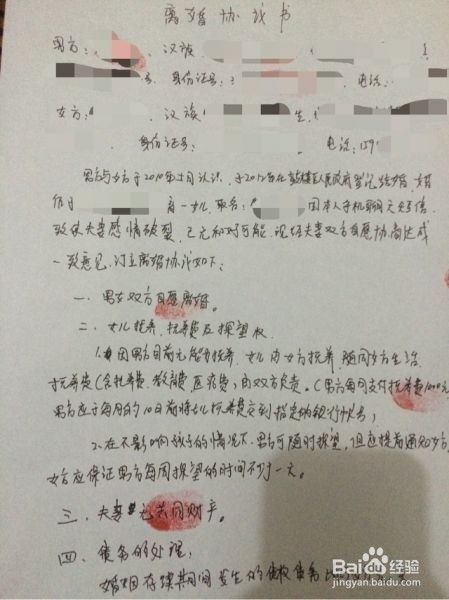 离婚协议书
男方: 汉族
号. 身份证号: 电话:
女方: 汉族 生,
身份证号: 电话:159
男方与女方于2010年 月认识,于2012年在 人民政府登记结婚,婚
后于 育一女儿,取名: 因本人手机聊天失信,
致使夫妻感情破裂,已无和好可能,现经夫妻双方自愿协商达成
一致意见,订立离婚协议如下:
一、男女双方自愿离婚。
二、女儿抚养、抚养费及探望权
1.因男方目前无能力抚养,女儿由女方抚养,随同女方生活,
抚养费(含托养费、教育费、医疗费)由双方负责。(男方每月支付抚养费1000元
男方应于每月的10日前将女儿抚养费交到指定的银行帐号;
2.在不影响孩子的情况下,男方可随时探望,但应提前通知女方,
女方应保证男方每周探望的时间不少于一天。
三、夫妻无共同财产。
四、债务的处理:
婚姻存续期间发生的债权债务
Baidu经验
jingyan.baidu.com